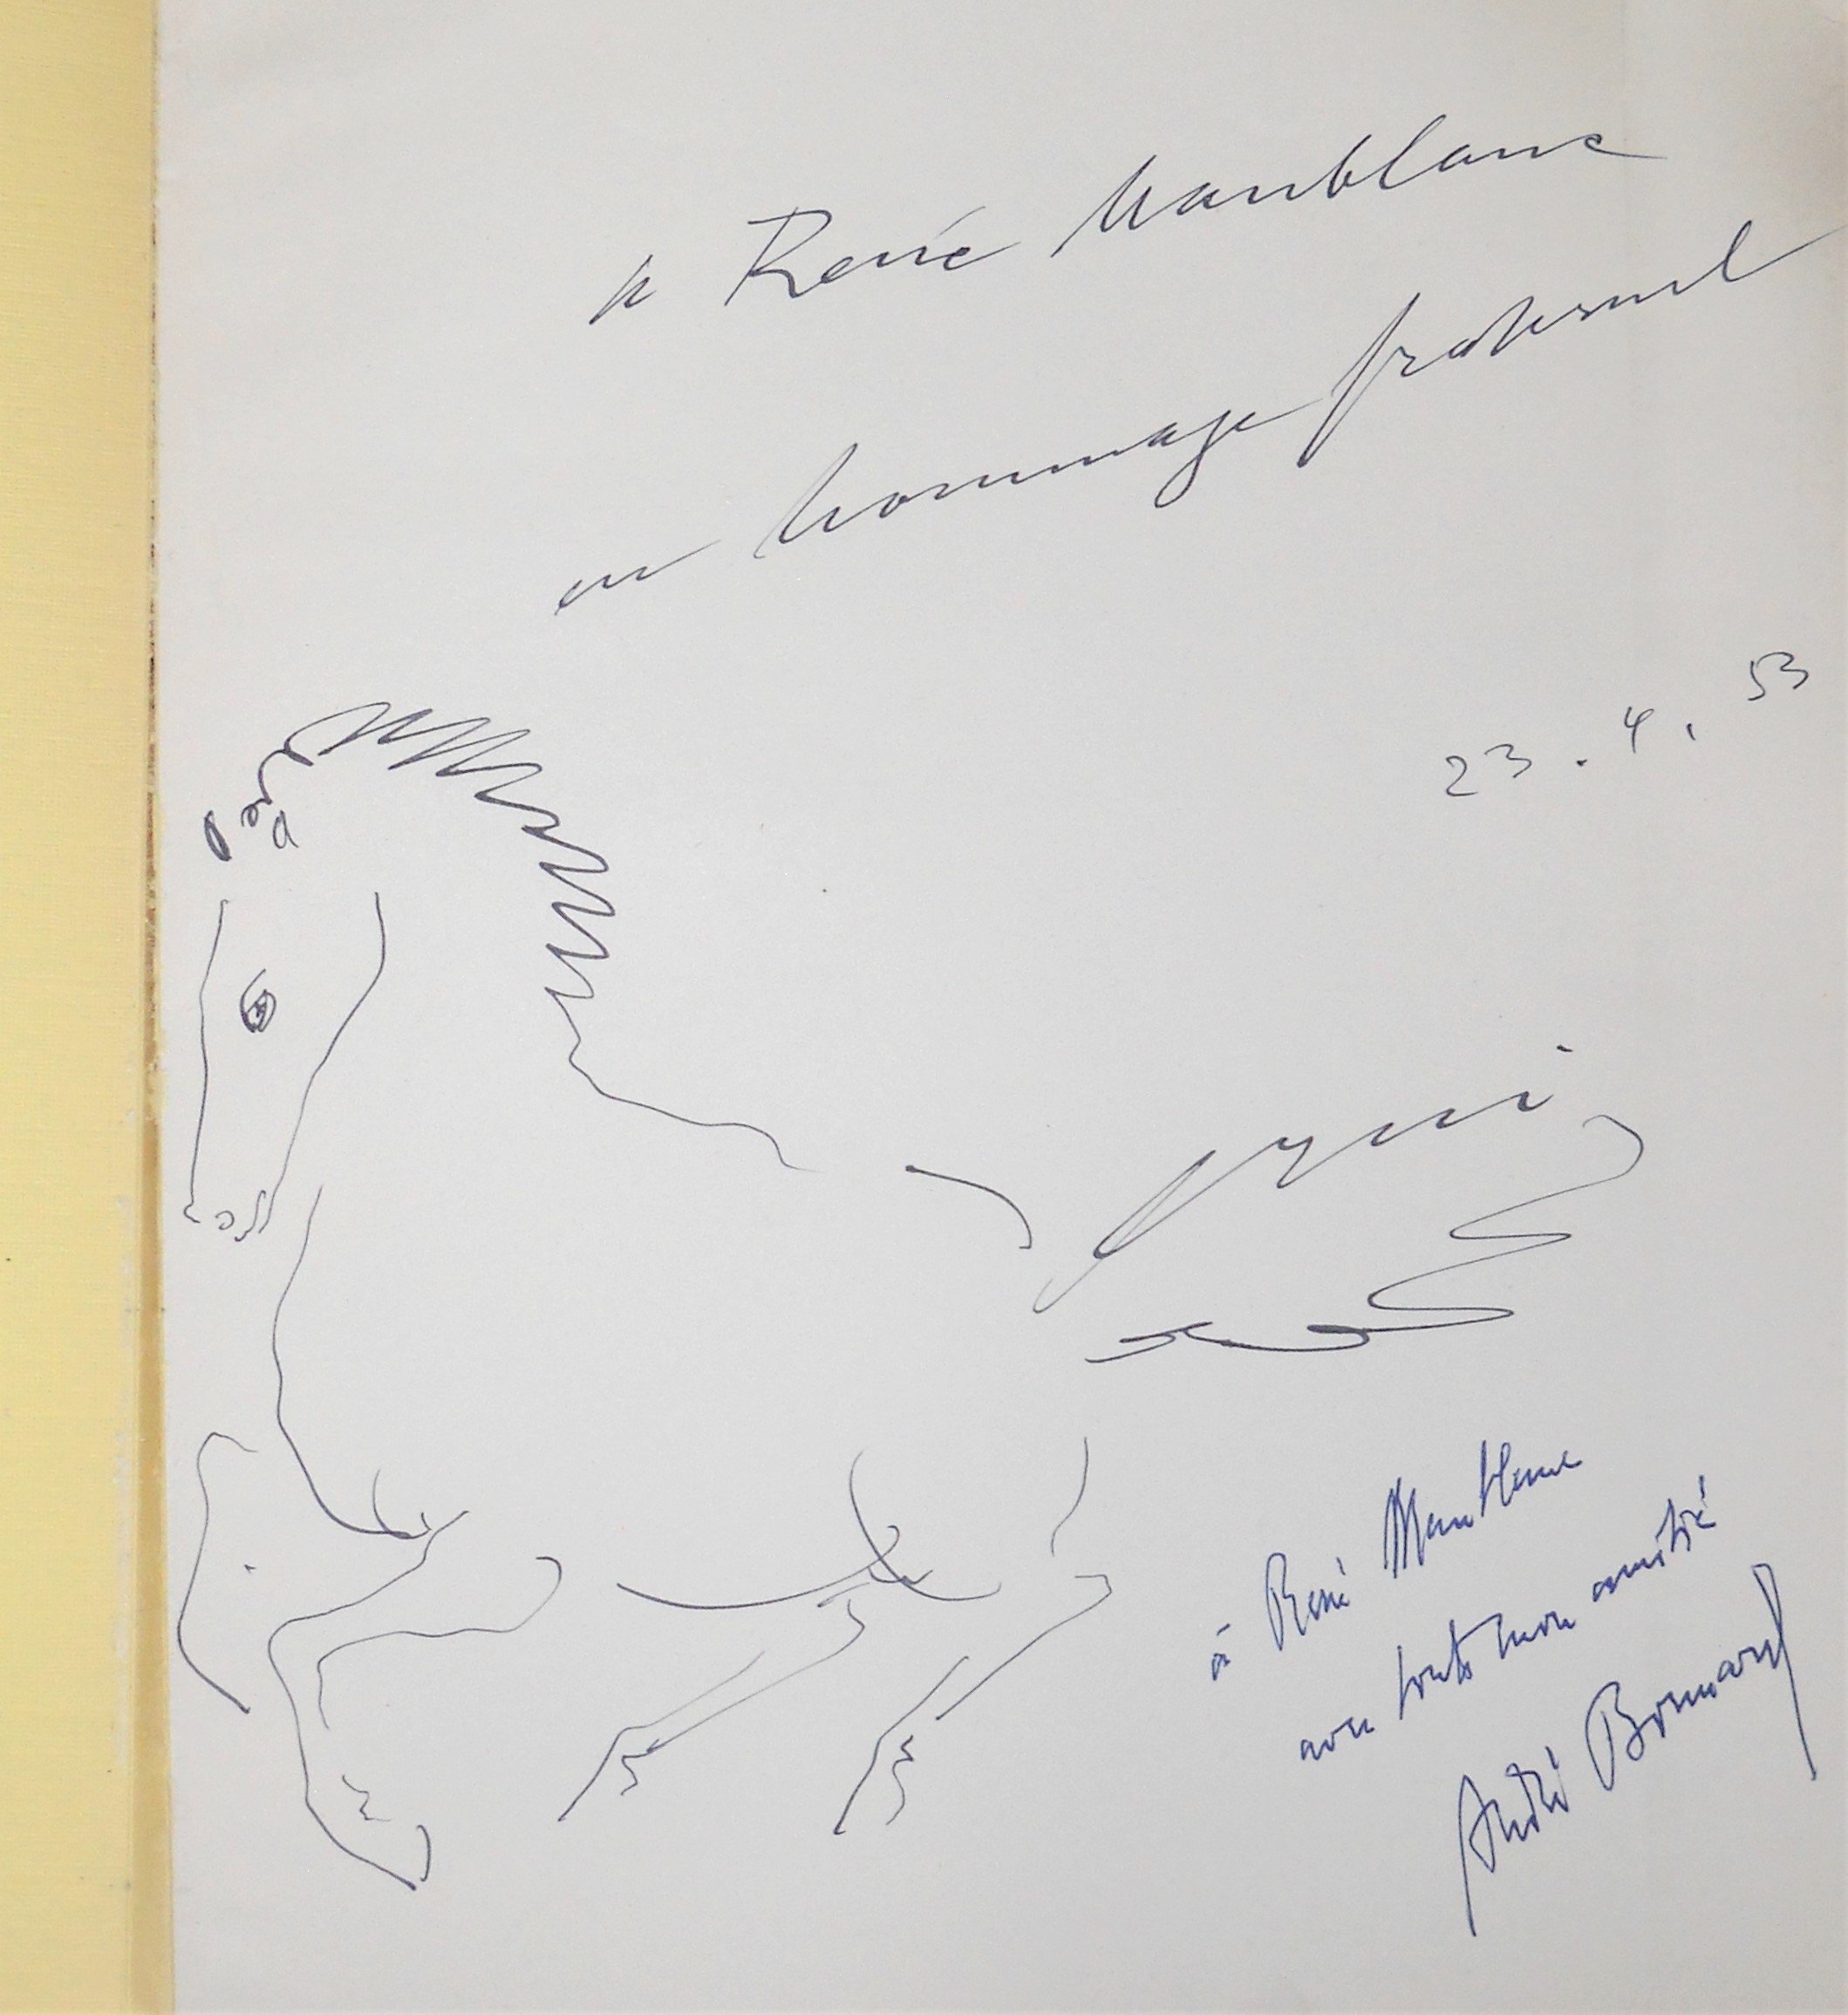 à René Maublanc
en hommage fraternel
23.4.53
erni
à René Maublanc
avec toute mon amitié
André Bonnard